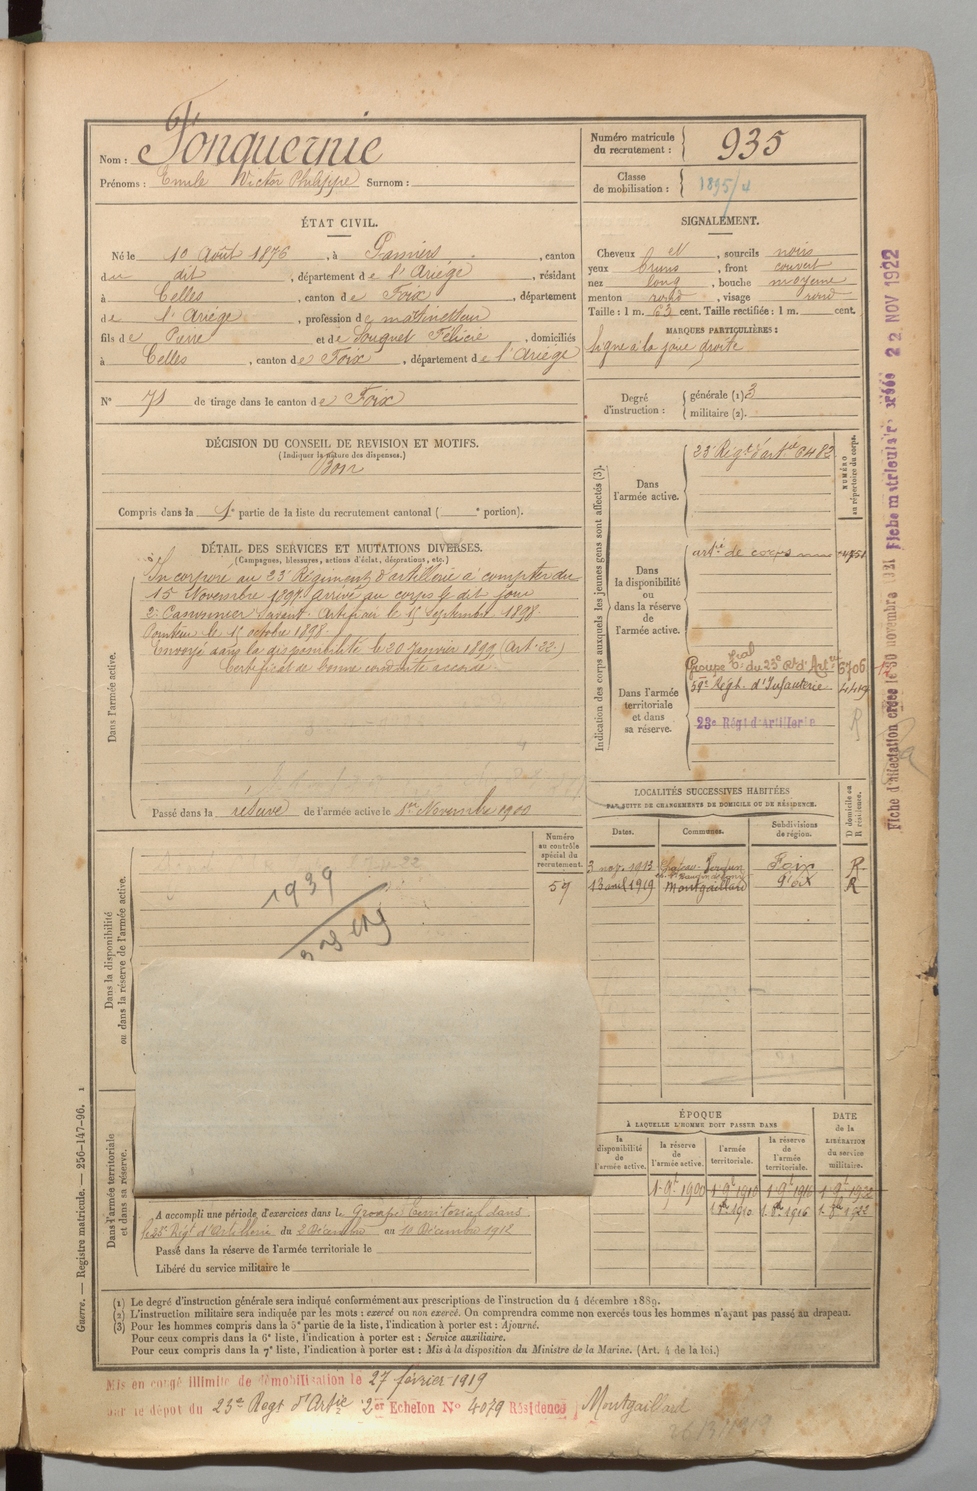 Nom : Fonquernie
Prénoms : Emile Victor Philippe Surnom :
Numéro matricule du recrutement : 935
Classe de mobilisation : 1895/4
ÉTAT CIVIL.
Né le 10 Août 1876, à Pamiers, canton
du dit, département de l'Ariège, résidant
à Celles, canton de Foix, département
de l'Ariège, profession de
fils de Pierre et de Félicie, domiciliés
à Celles, canton de Foix, département de l'Ariège
N° 71 de tirage dans le canton de Foix
SIGNALEMENT.
Cheveux et, sourcils noirs
yeux bruns, front couvert
nez long, bouche moyenne
menton rond, visage rond
Taille : 1 m. 63 cent. Taille rectifiée : 1 m. cent.
MARQUES PARTICULIÈRES :
Signe à la joue droite
Degré d'instruction : générale (1) 3
militaire (2).
DÉCISION DU CONSEIL DE REVISION ET MOTIFS.
(Indiquer la nature des dispenses.)
Bon
Compris dans la 1e partie de la liste du recrutement cantonal ( e portion).
DÉTAIL DES SERVICES ET MUTATIONS DIVERSES.
(Campagnes, blessures, actions d'éclat, décorations, etc.)
Dans l'armée active.
Incorporé au 23e Régiment d'artillerie à compter du
15 Novembre 1897. Arrivé au corps le dit jour
2e Canonnier Servant. Artificier le 15 Septembre 1898.
Pointeur le 15 octobre 1898.
Envoyé dans la disponibilité le 20 Janvier 1899 (Art. 22.)
Certificat de bonne conduite accordé.
Passé dans la réserve de l'armée active le 1er Novembre 1900
Indication des corps auxquels les jeunes gens sont affectés (3).
NUMÉRO au répertoire du corps.
Dans l'armée active.
23e Régt d'artie 6483
Dans la disponibilité ou dans la réserve de l'armée active.
artie de corps 4751
Dans l'armée territoriale et dans sa réserve.
Groupe Tal du 23e Rt d'Artie 6706
59e Régt. d'Infanterie
23e Régt d'Artillerie
R
LOCALITÉS SUCCESSIVES HABITÉES
PAR SUITE DE CHANGEMENTS DE DOMICILE OU DE RÉSIDENCE.
Dates. Communes. Subdivisions de région. D domicile ou R résidence.
3 nov. 1913 Foix R
13 avril 1919 Montgaillard Foix R
Dans la disponibilité ou dans la réserve de l'armée active.
Numéro au contrôle spécial du recrutement.
57
1939
Dans l'armée territoriale et dans sa réserve.
A accompli une période d'exercices dans le Groupe Territorial dans
le 23e Régt d'Artillerie du 2 Décembre au 10 Décembre 1912
Passé dans la réserve de l'armée territoriale le
Libéré du service militaire le
ÉPOQUE
À LAQUELLE L'HOMME DOIT PASSER DANS
la disponibilité de l'armée active. la réserve de l'armée active. l'armée territoriale. la réserve de l'armée territoriale.
DATE de la LIBÉRATION du service militaire.
1 9e 1900 1 9e 1910 1 9e 1916 1 9e 1922
1 8e 1910 1. 8e 1916 1. 8e 1922
(1) Le degré d'instruction générale sera indiqué conformément aux prescriptions de l'instruction du 4 décembre 1889.
(2) L'instruction militaire sera indiquée par les mots : exercé ou non exercé. On comprendra comme non exercés tous les hommes n'ayant pas passé au drapeau.
(3) Pour les hommes compris dans la 5e partie de la liste, l'indication à porter est : Ajourné.
Pour ceux compris dans la 6e liste, l'indication à porter est : Service auxiliaire.
Pour ceux compris dans la 7e liste, l'indication à porter est : Mis à la disposition du Ministre de la Marine. (Art. 4 de la loi.)
Mis en congé illimité de démobilisation le 27 février 1919
par le dépôt du 23e Regt d'Artie 2er Echelon N° 4079 Résidence Montgaillard
Guerre. — Registre matricule. — 256-147-96. 1
Fiche d'affectation créée le 30 novembre 1921 Fiche matriculaire créée 22 NOV 1922